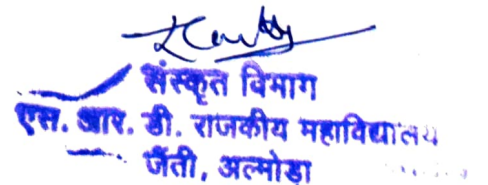 संस्कृत विभाग
एस. आर. डी. राजकीय महाविद्यालय
जैंती, अल्मोडा